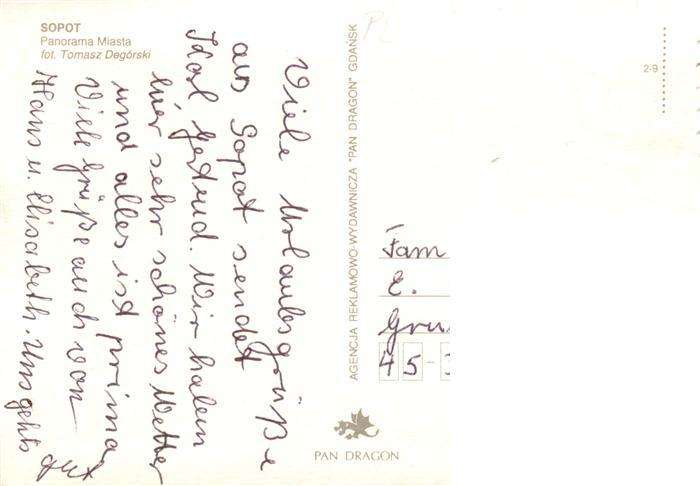 SOPOT
Panorama Miasta
fot. Tomasz Degórski
Viele Urlaubsgrüße
aus Sopot sendet
Karl Gertrud. Wir haben
hier sehr schönes Wetter
und alles ist prima
Viele Grüße auch von
Hans u. Elisabeth. Uns gehts
gut
AGENCJA REKLAMOWO-WYDAWNICZA "PAN DRAGON" GDAŃSK
PL
2-9
Fam
E.
Gru
45-
PAN DRAGON